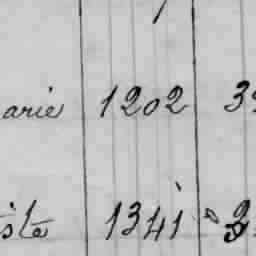 arie 1202 3
iste 1341